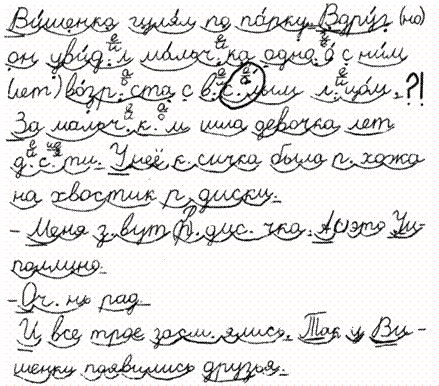 Вишенка гулял по парку. Вдруг (но)
он увид.л мальч.ка одна.о с ним
(лет) возр.ста с в.с.лым л.цом.?!
За мальч.к.м шла девочка лет
д.с.ти. У неё к.сичка была п.хожа
на хвостик р.диски.
- Меня з.вут Р.дис.чка. А это Чи-
поллино.
- Оч.нь рад.
И все трое засм.ялись. Так у Ви-
шенки появились друзья.